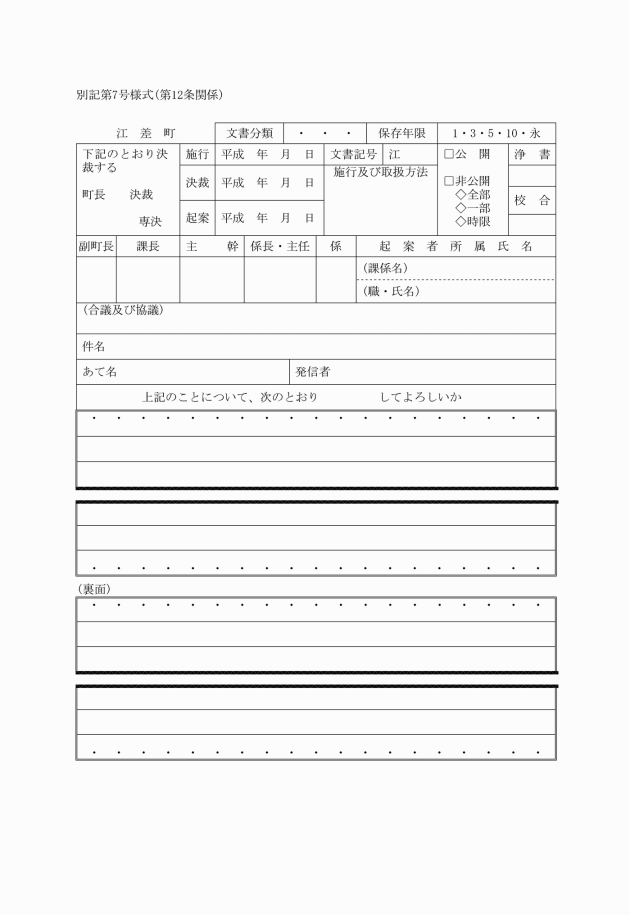 別記第7号様式(第12条関係)
江 差 町 文書分類 ・ ・ ・ 保存年限 1・3・5・10・永
下記のとおり決裁する
町長 決裁
専決
施行 平成 年 月 日 文書記号 江
決裁 平成 年 月 日
起案 平成 年 月 日
施行及び取扱方法
□公 開
□非公開
◇全部
◇一部
◇時限
浄 書
校 合
副町長 課長 主 幹 係長・主任 係 起 案 者 所 属 氏 名
(課係名)
(職・氏名)
(合議及び協議)
件名
あて名 発信者
上記のことについて、次のとおり してよろしいか
・ ・ ・ ・ ・ ・ ・ ・ ・ ・ ・ ・ ・ ・ ・ ・ ・ ・ ・
・ ・ ・ ・ ・ ・ ・ ・ ・ ・ ・ ・ ・ ・ ・ ・ ・ ・ ・
(裏面)
・ ・ ・ ・ ・ ・ ・ ・ ・ ・ ・ ・ ・ ・ ・ ・ ・ ・ ・
・ ・ ・ ・ ・ ・ ・ ・ ・ ・ ・ ・ ・ ・ ・ ・ ・ ・ ・